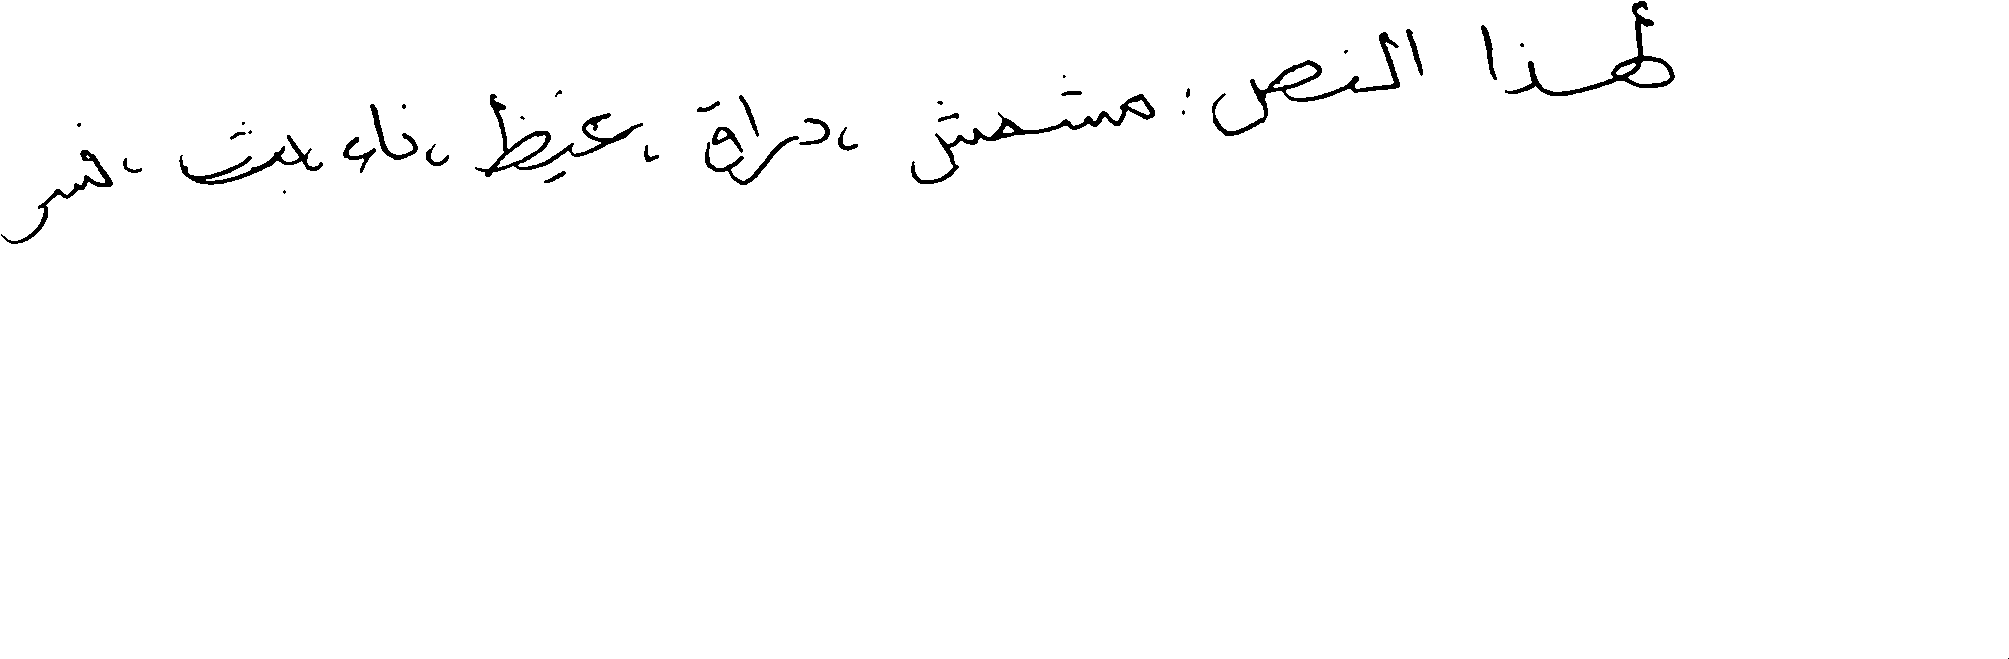 لهذا النص: مشمش، دراق، غيظ، ناء، عبث، فسر